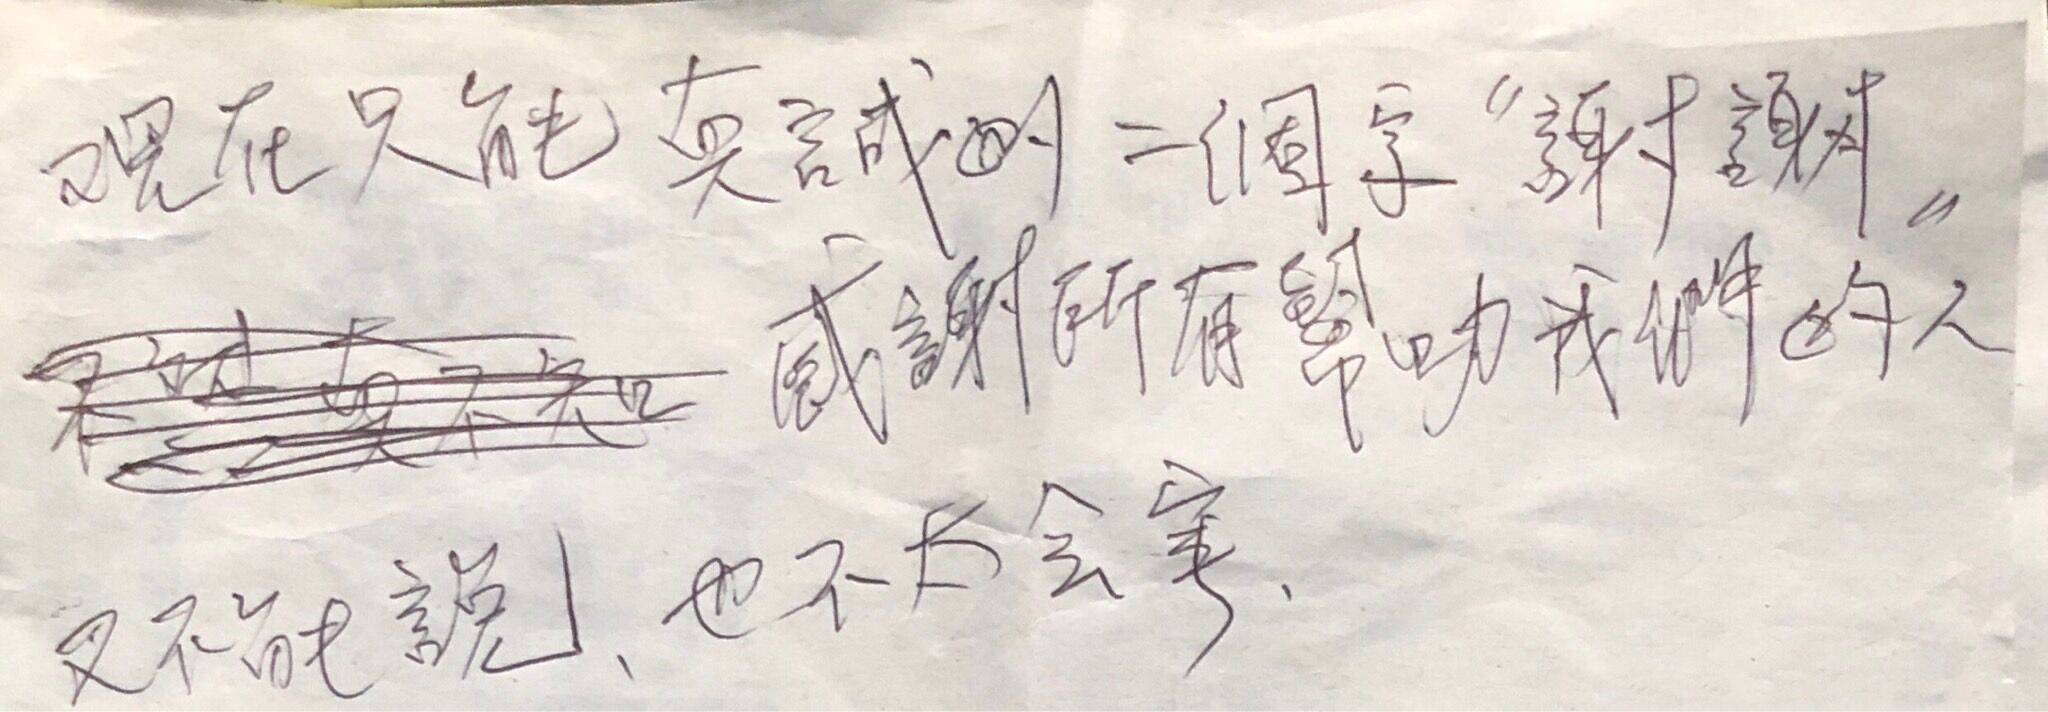 現在只能真誠的二個字“謝謝”
感謝所有幫助我們的人
又不能說、也不太会寫、